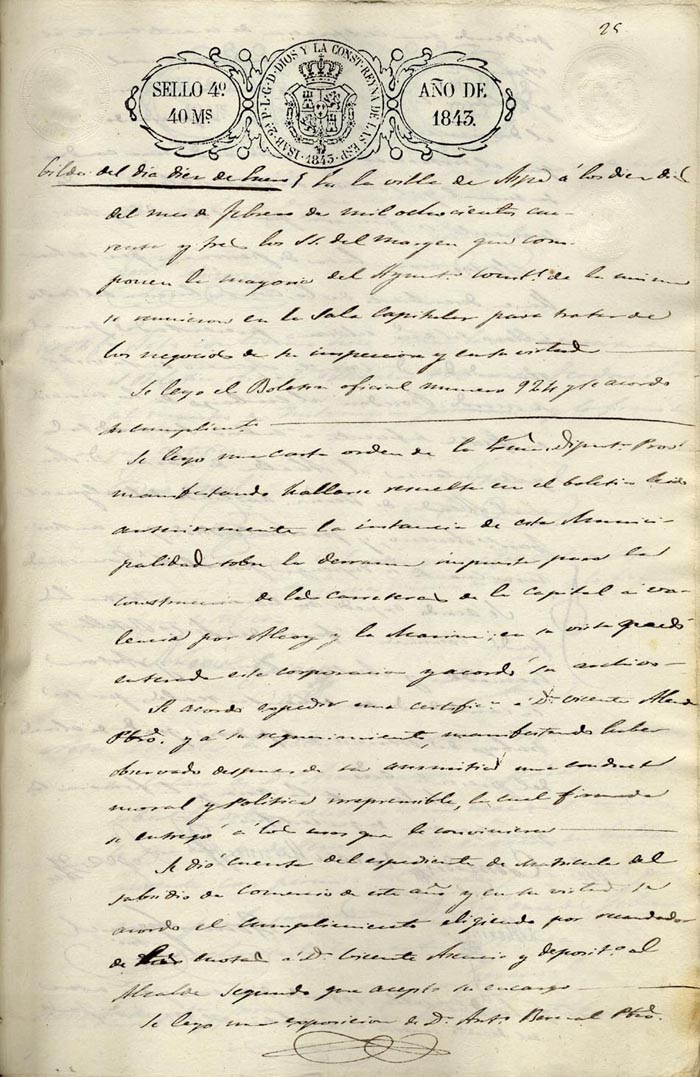 25
SELLO 4º
40 Ms
ISAB. 2ª P. L. G. D. DIOS Y LA CONST. REYNA DE LAS ESP. 1843.
AÑO DE
1843.
del dia diez de En la villa de Aspe á los diez dias
del mes de febrero de mil ochocientos cua-
renta y tres los SS. del Margen que com-
ponen la mayoria del Ayunt.º const.l de la misma
se reunieron en la Sala Capitular para tratar de
los negocios de su inspeccion y en su virtud
Se leyo el Boletin oficial numero 924 y se acordo
su cumplimiento
Se leyo una carta orden de la Diput.n Prov.l
manifestando hallarse resuelta en el boletin leido
anteriormente la instancia de esta Munici-
palidad sobre la derrama impuesta para la
construccion de las carreteras de la capital á va-
lencia por Alcoy y la Marina; en su vista quedó
enterada esta corporacion y acordó su archivo
Se acordo espedir una certific.n á D.n Vicente
Pbro. y á su requerimiento, manifestando haber
observado despues de su una conducta
moral y Politica irreprensible, la cual firmada
se entregó á los usos que le convinieren
Se dio cuenta del espediente de Matricula del
subsidio de Comercio de este año y en su virtud se
acordo el cumplimiento elijiendo por recaudador
de cuotas á D.n Vicente Asencio y deposit.o al
Alcalde Segundo que acepto su encargo
Se leyo una exposicion de D.n Ant.o Pbro.